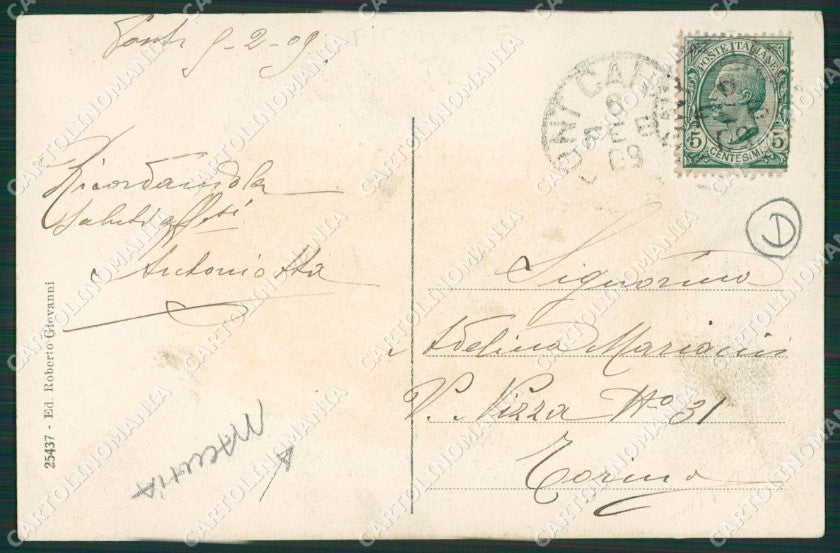 Pont 9-2-09.
Ricordandola
saluti affti
Antonietta
25437 - Ed. Roberto Giovanni
MACCHIA
PONT CANA
9 FEB 09
POSTE ITALIANE
5 CENTESIMI 5
D
Signorina
Adelina Mariani
V. Nizza No 31
Torino
CARTOLINOMANIA